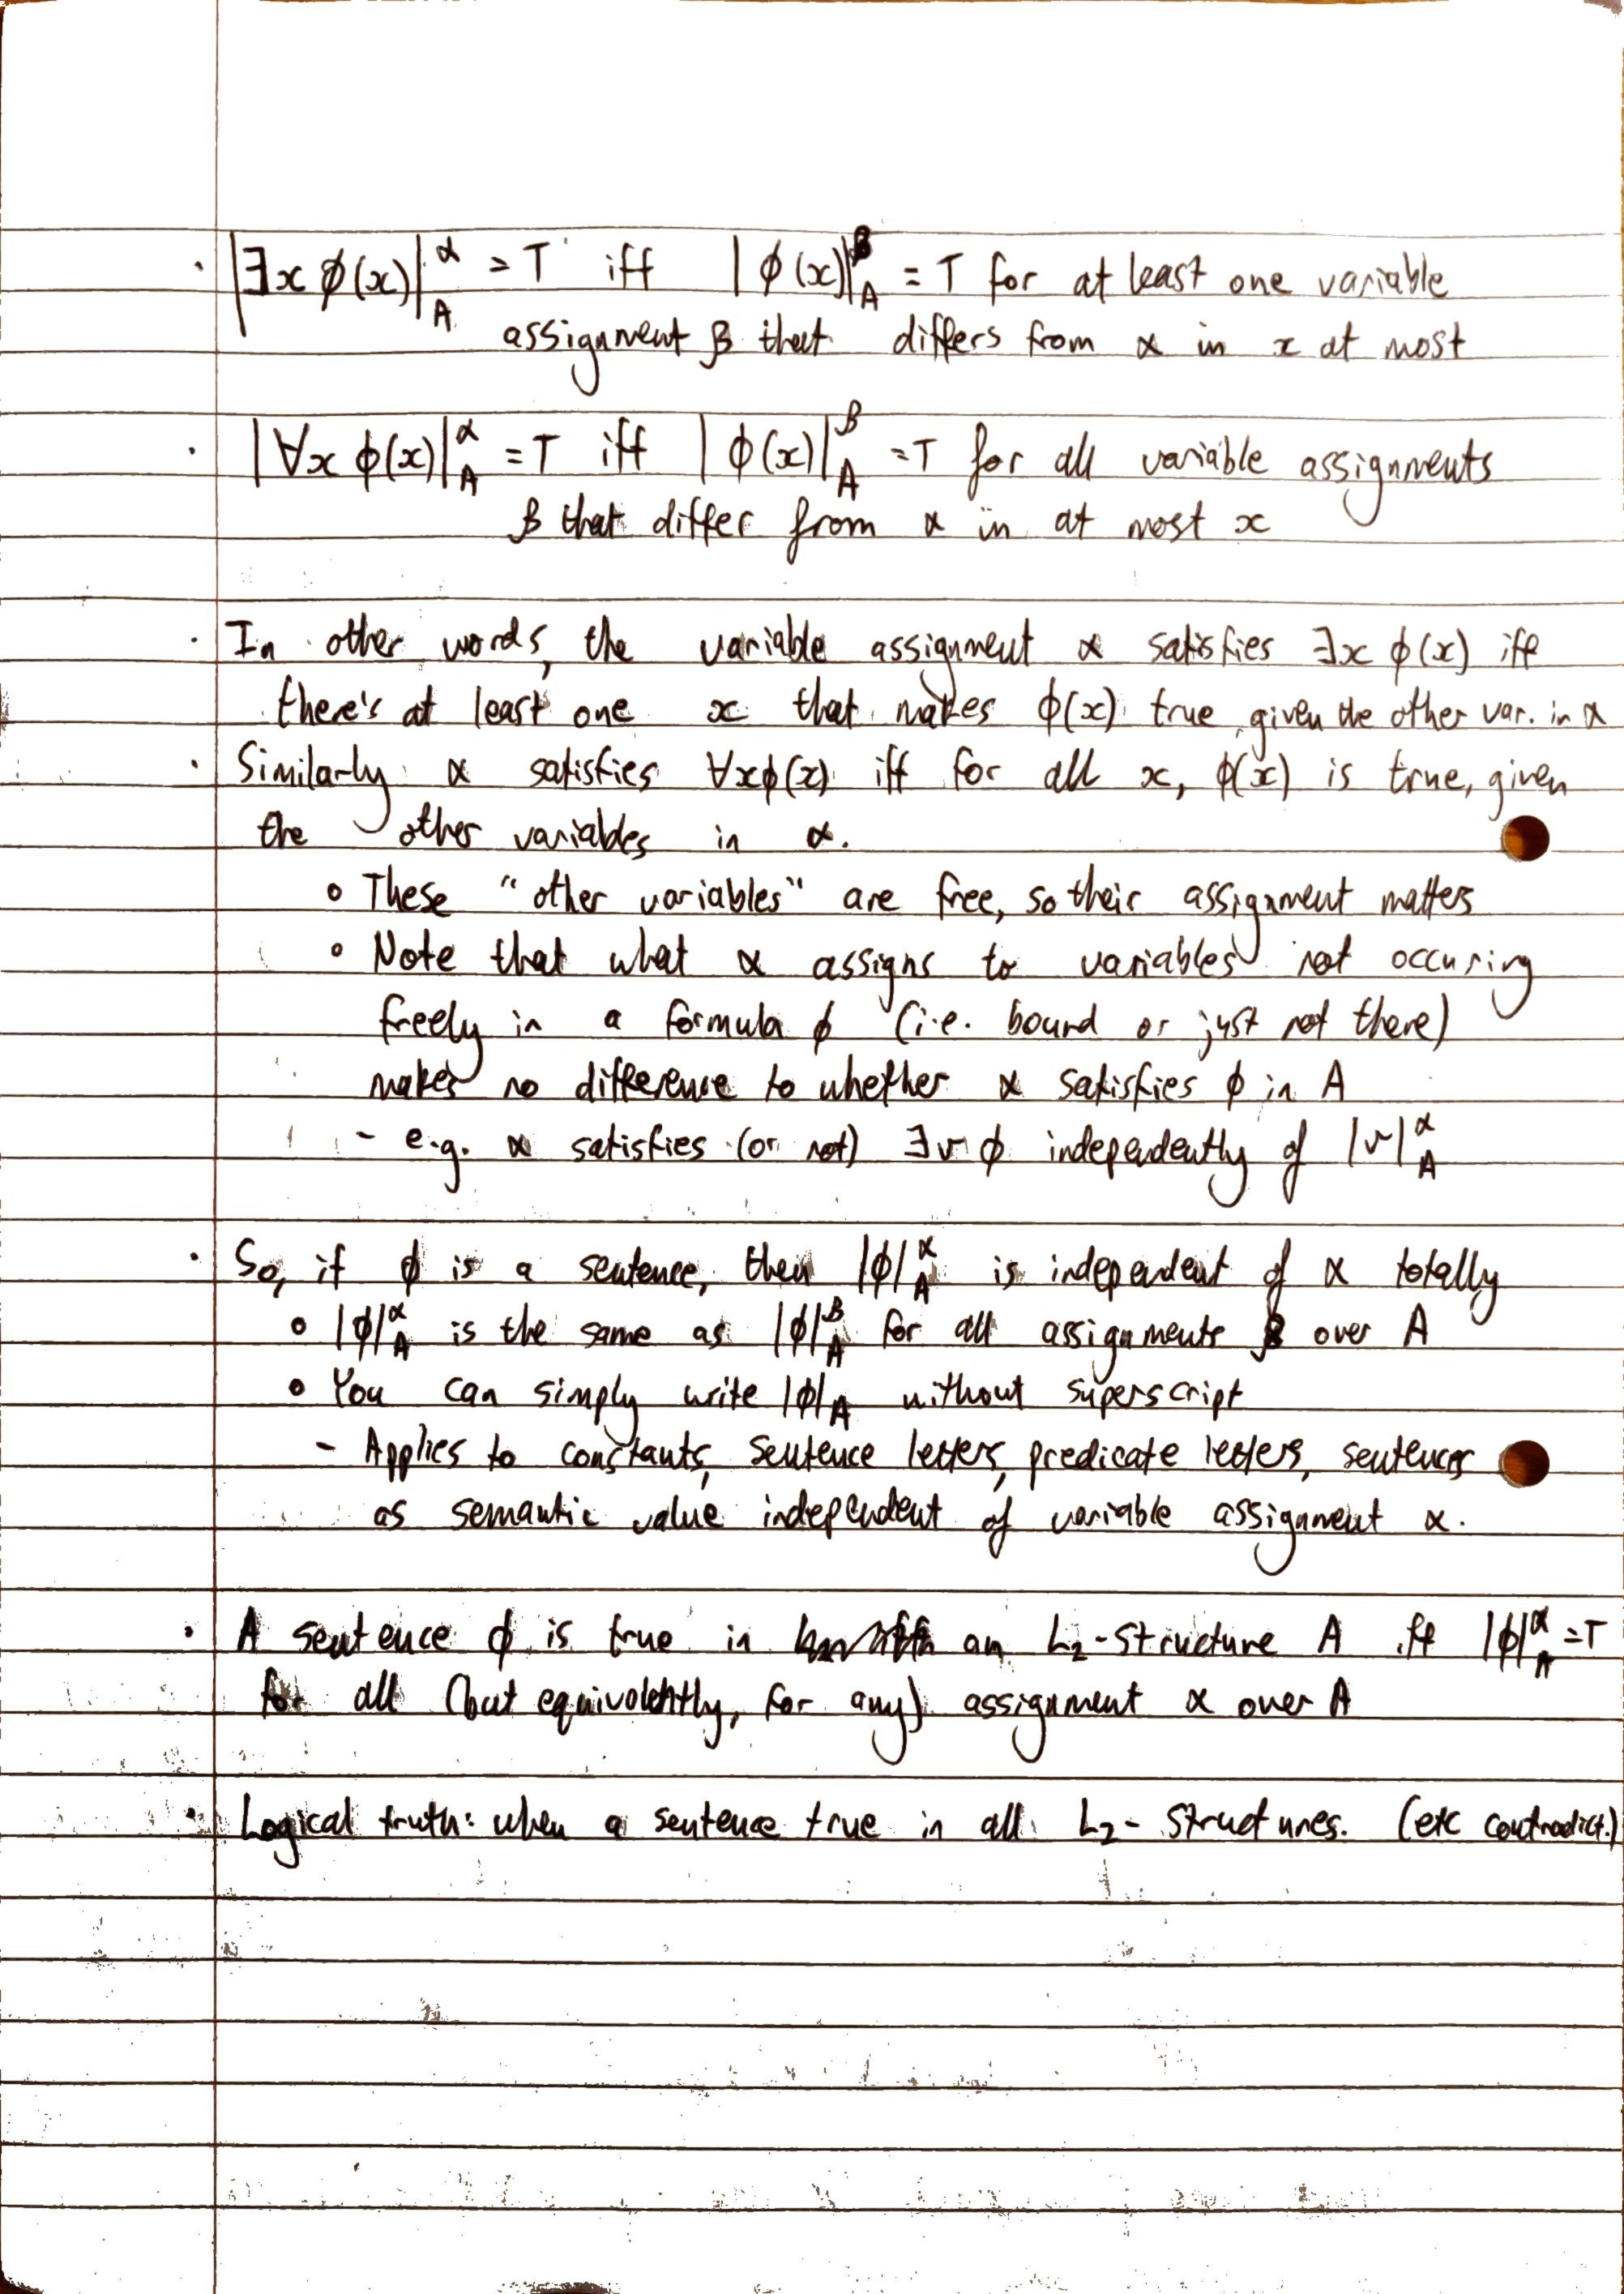 · |∃x ϕ(x)|ᵅ_A = T iff |ϕ(x)|ᵝ_A = T for at least one variable
assignment β that differs from α in x at most
· |∀x ϕ(x)|ᵅ_A = T iff |ϕ(x)|ᵝ_A = T for all variable assignments
β that differ from α in at most x
· In other words, the variable assignment α satisfies ∃x ϕ(x) iff
there's at least one x that makes ϕ(x) true, given the other var. in α
· Similarly α satisfies ∀xϕ(x) iff for all x, ϕ(x) is true, given
the other variables in α.
∘ These "other variables" are free, so their assignment matters
∘ Note that what α assigns to variables not occuring
freely in a formula ϕ (i.e. bound or just not there)
makes no difference to whether α satisfies ϕ in A
- e.g. α satisfies (or not) ∃v ϕ independently of |v|ᵅ_A
· So, if ϕ is a sentence, then |ϕ|ᵅ_A is independent of α totally
∘ |ϕ|ᵅ_A is the same as |ϕ|ᵝ_A for all assignments β over A
∘ You can simply write |ϕ|_A without superscript
- Applies to constants, sentence letters, predicate letters, sentences
as semantic value independent of variable assignment α.
· A sentence ϕ is true in an L₂-structure A iff |ϕ|ᵅ_A = T
for all (but equivalently, for any) assignment α over A
· Logical truth: when a sentence true in all L₂-structures. (etc contradict.)